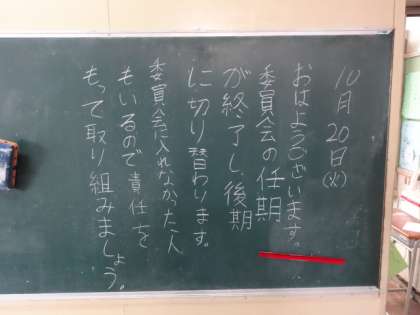 10月20日(火)
おはようございます。
委員会の任期
が終了し、後期
に切り替わります。
委員会に入れなかった人
もいるので責任を
もって取り組みましょう。